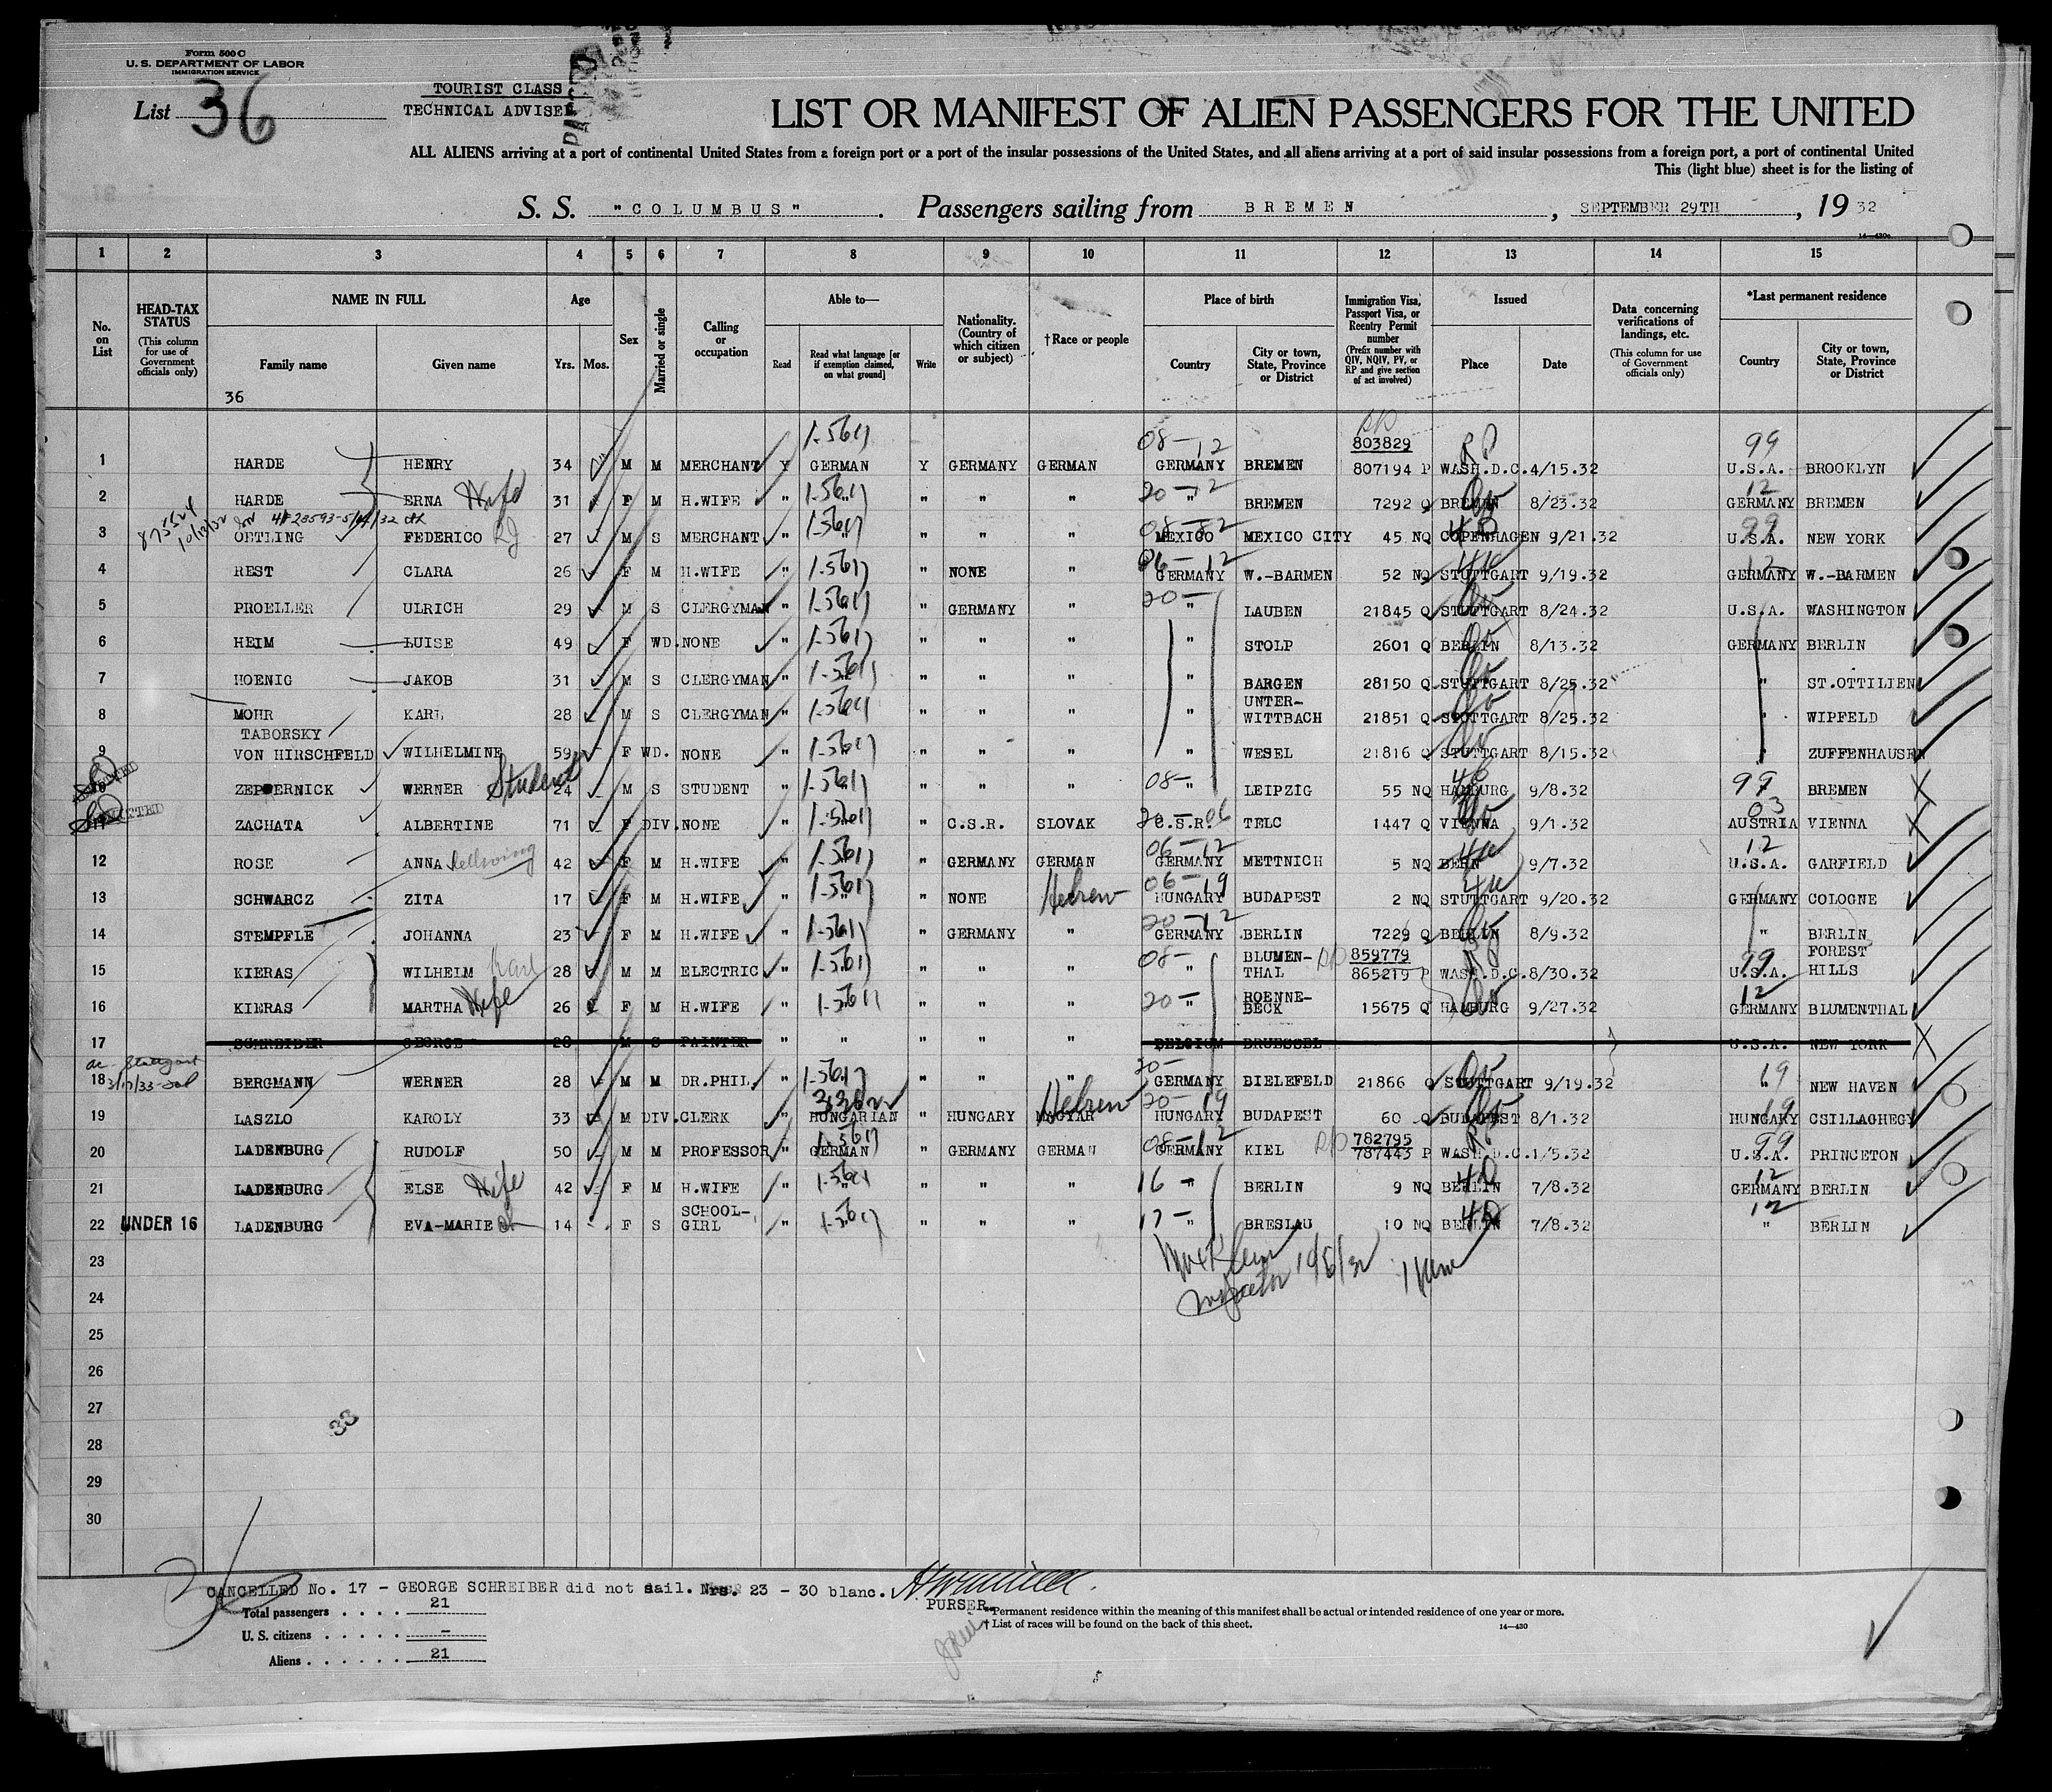 Form 500 C
U. S. DEPARTMENT OF LABOR
IMMIGRATION SERVICE
List 36
TOURIST CLASS
TECHNICAL ADVISER
LIST OR MANIFEST OF ALIEN PASSENGERS FOR THE UNITED
ALL ALIENS arriving at a port of continental United States from a foreign port or a port of the insular possessions of the United States, and all aliens arriving at a port of said insular possessions from a foreign port, a port of continental United
This (light blue) sheet is for the listing of
S. S. "COLUMBUS". Passengers sailing from BREMEN, SEPTEMBER 29TH, 1932
14—430c
1 2 3 4 5 6 7 8 9 10 11 12 13 14 15
No. on List
HEAD-TAX STATUS (This column for use of Government officials only)
NAME IN FULL
Family name Given name
Age
Yrs. Mos.
Sex
Married or single
Calling or occupation
Able to—
Read
Read what language [or if exemption claimed, on what ground]
Write
Nationality. (Country of which citizen or subject)
†Race or people
Place of birth
Country
City or town, State, Province or District
Immigration Visa, Passport Visa, or Reentry Permit number (Prefix number with QIV, NQIV, PV, or RP and give section of act involved)
Issued
Place Date
Data concerning verifications of landings, etc. (This column for use of Government officials only)
*Last permanent residence
Country
City or town, State, Province or District
36
803829
1 HARDE HENRY 34 M M MERCHANT Y GERMAN Y GERMANY GERMAN GERMANY BREMEN 807194 P WASH.D.C. 4/15.32 U.S.A. BROOKLYN
2 HARDE ERNA Wife 31 F M H.WIFE " " " " " " BREMEN 7292 Q BREMEN 8/23.32 GERMANY BREMEN
3 OETLING FEDERICO 27 M S MERCHANT " " " " " MEXICO MEXICO CITY 45 NQ COPENHAGEN 9/21.32 U.S.A. NEW YORK
4 REST CLARA 26 F M H.WIFE " " " NONE " GERMANY W.-BARMEN 52 NQ STUTTGART 9/19.32 GERMANY W.-BARMEN
5 PROELLER ULRICH 29 M S CLERGYMAN " " " GERMANY " " LAUBEN 21845 Q STUTTGART 8/24.32 U.S.A. WASHINGTON
6 HEIM LUISE 49 F WD. NONE " " " " " " STOLP 2601 Q BERLIN 8/13.32 GERMANY BERLIN
7 HOENIG JAKOB 31 M S CLERGYMAN " " " " " " BARGEN 28150 Q STUTTGART 8/25.32 " ST.OTTILIEN
8 MOHR KARL 28 M S CLERGYMAN " " " " " " UNTER-WITTBACH 21851 Q STUTTGART 8/25.32 " WIPFELD
9 TABORSKY VON HIRSCHFELD WILHELMINE 59 F WD. NONE " " " " " " WESEL 21816 Q STUTTGART 8/15.32 " ZUFFENHAUSEN
10 ZEPERNICK WERNER Student 24 M S STUDENT " " " " " " LEIPZIG 55 NQ HAMBURG 9/8.32 " BREMEN
11 ZACHATA ALBERTINE 71 F DIV. NONE " " " C.S.R. SLOVAK C.S.R. TELC 1447 Q VIENNA 9/1.32 AUSTRIA VIENNA
12 ROSE ANNA 42 F M H.WIFE " " " GERMANY GERMAN GERMANY METTNICH 5 NQ BERN 9/7.32 U.S.A. GARFIELD
13 SCHWARCZ ZITA 17 F M H.WIFE " " " NONE Hebrew HUNGARY BUDAPEST 2 NQ STUTTGART 9/20.32 GERMANY COLOGNE
14 STEMPFLE JOHANNA 23 F M H.WIFE " " " GERMANY " GERMANY BERLIN 7229 Q BERLIN 8/9.32 " BERLIN
15 KIERAS WILHELM Karl 28 M M ELECTRIC " " " " " " BLUMEN-THAL 859779 865219 P WASH.D.C. 8/30.32 U.S.A. FOREST HILLS
16 KIERAS MARTHA Wife 26 F M H.WIFE " " " " " " ROENNE-BECK 15675 Q HAMBURG 9/27.32 GERMANY BLUMENTHAL
17 SCHREIBER GEORGE 28 M S PAINTER " " " " " BELGIUM BRUESSEL U.S.A. NEW YORK
18 BERGMANN WERNER 28 M M DR.PHIL. " " " " " GERMANY BIELEFELD 21866 Q STUTTGART 9/19.32 " NEW HAVEN
19 LASZLO KAROLY 33 M DIV. CLERK " HUNGARIAN " HUNGARY MAGYAR Hebrew HUNGARY BUDAPEST 60 Q BUDAPEST 8/1.32 HUNGARY CSILLAGHEGY
20 LADENBURG RUDOLF 50 M M PROFESSOR " GERMAN " GERMANY GERMAN GERMANY KIEL 782795 787443 P WASH.D.C. 1/5.32 U.S.A. PRINCETON
21 LADENBURG ELSE Wife 42 F M H.WIFE " " " " " " BERLIN 9 NQ BERLIN 7/8.32 GERMANY BERLIN
22 UNDER 16 LADENBURG EVA-MARIE 14 F S SCHOOL-GIRL " " " " " " BRESLAU 10 NQ BERLIN 7/8.32 " BERLIN
23
24
25
26
27
28
29
30
33
CANCELLED No. 17 - GEORGE SCHREIBER did not sail. Nrs. 23 - 30 blanc.
PURSER.
Total passengers . . . . 21
U. S. citizens . . . . . -
Aliens . . . . . . 21
*Permanent residence within the meaning of this manifest shall be actual or intended residence of one year or more.
† List of races will be found on the back of this sheet.
14—430